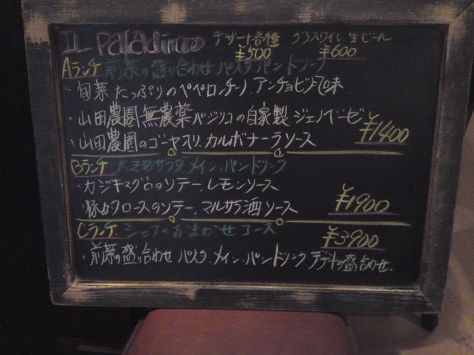 IL Paladino デザート各種 グラスワイン、生ビール
¥500 ¥600
Aランチ 前菜の盛り合わせ パスタ パン ドリンク
・旬菜たっぷりのペペロンチーノ アンチョビ風味
・山田農園無農薬バジリコの自家製ジェノベーゼ
・山田農園のゴーヤスリ、カルボナーラソース ¥1400
Bランチ 大きめサラダ メイン、パン、ドリンク
・カジキマグロのソテー、レモンソース
・豚肩ロースのソテー、マルサラ酒ソース ¥1900
Cランチ シェフのおまかせコース ¥3,900
・前菜の盛り合わせ パスタ メイン、パン、ドリンク デザートの盛り合わせ、